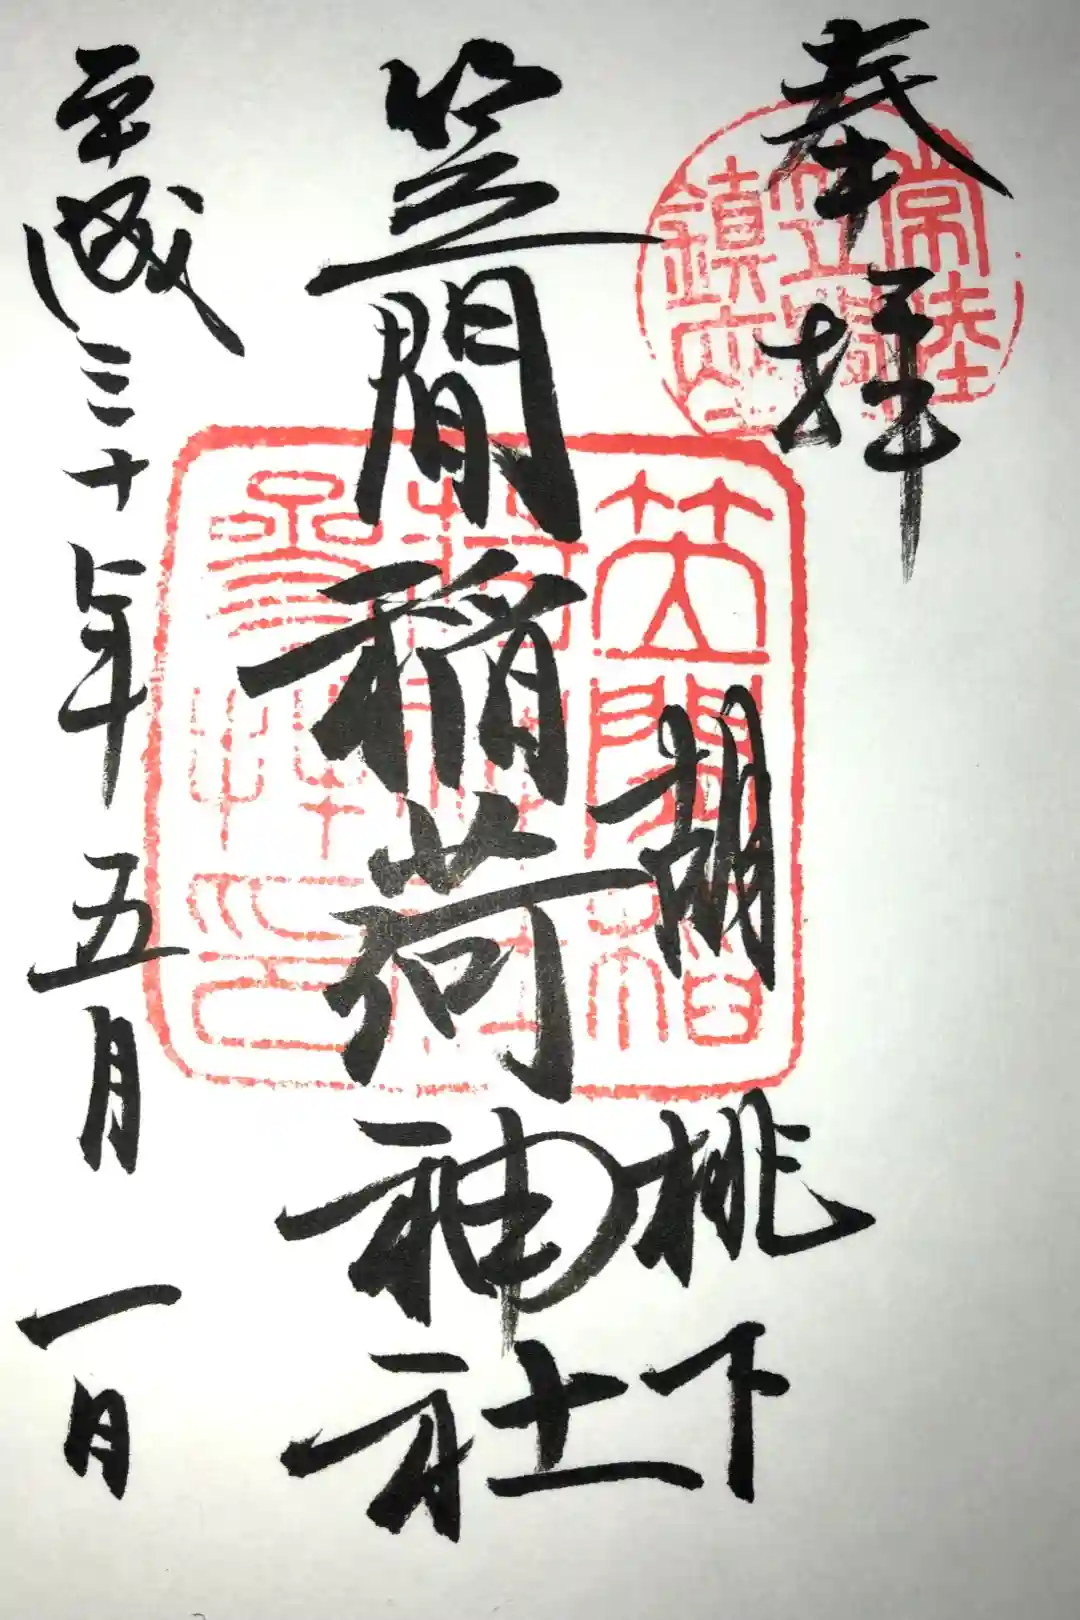 奉拝
常陸
笠間
鎮座
胡桃下
笠間稲荷神社
笠間稲
荷神社
參拝印
平成三十年五月一日